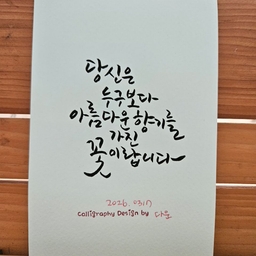 당신은
누구보다
아름다운 향기를
가진
꽃이랍니다
2026. 03.17
Calligraphy Design by 다논